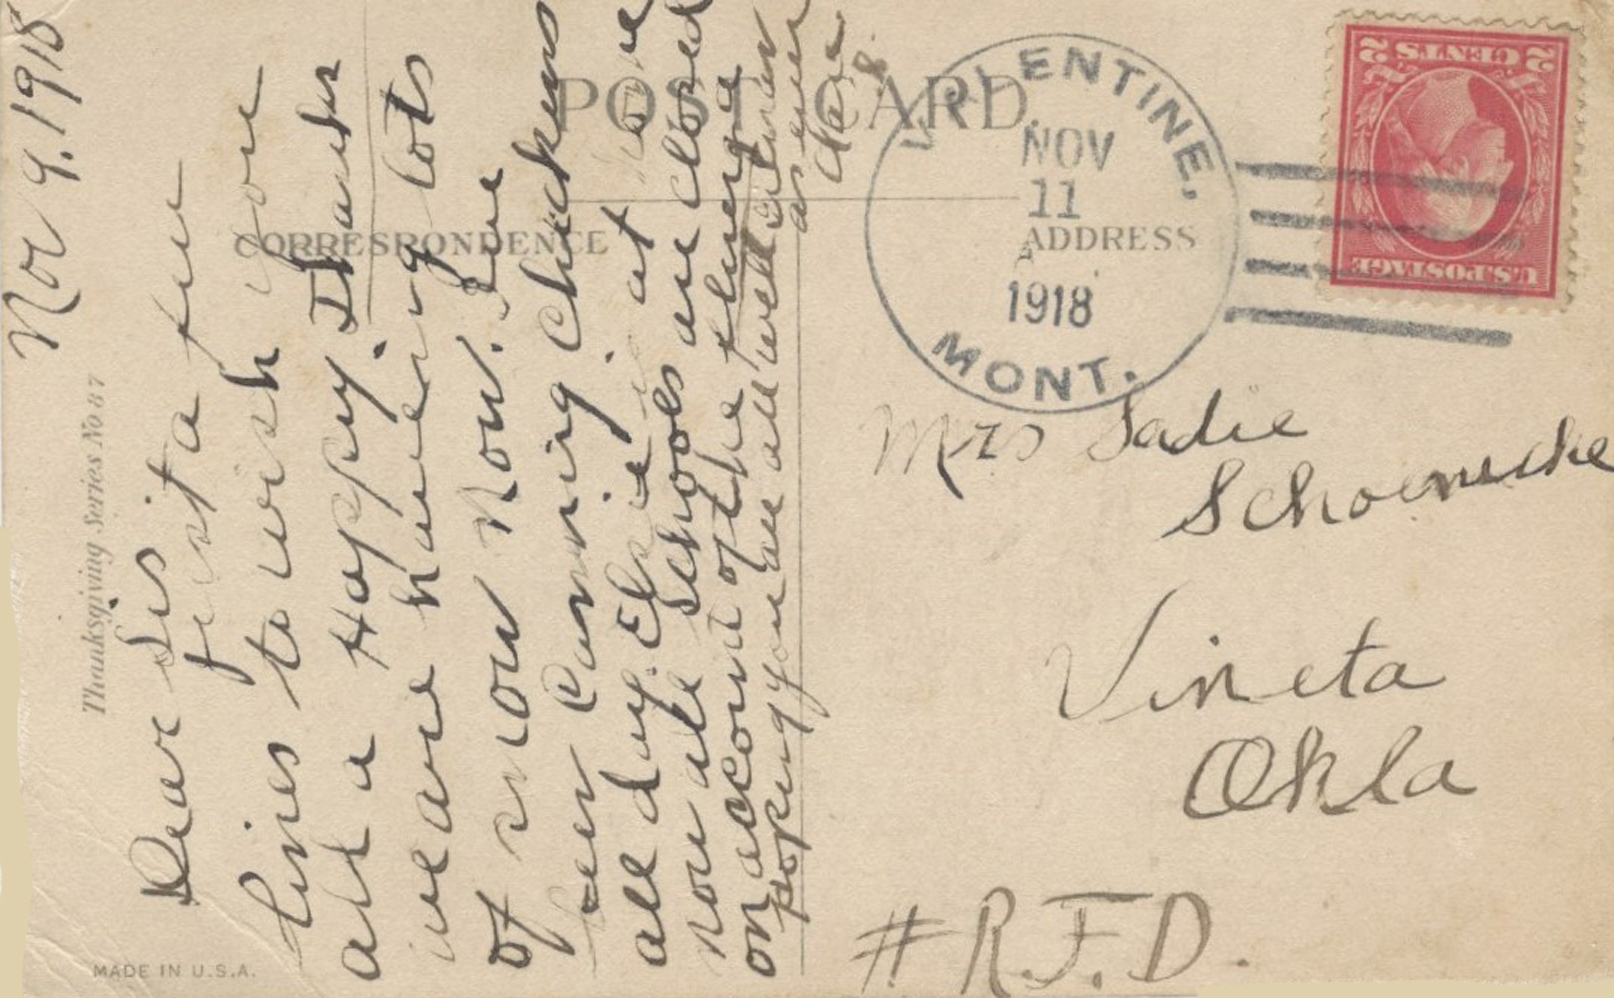 Nov 9. 1918
Dear Sis
just a few
lines to wish you
all a Happy Thanks
we are having lots
of snow now. I've
been canning chickens
all day. Elsie is at home
now all schools are closed
on account of the
hoping you are all well
as ever
POST CARD
CORRESPONDENCE
ADDRESS
Thanksgiving Series No 87
MADE IN U.S.A.
VALENTINE,
NOV
11
1918
MONT.
U.S. POSTAGE
2 CENTS 2
Mrs Sadie
Vineta
Okla
# R.F.D.